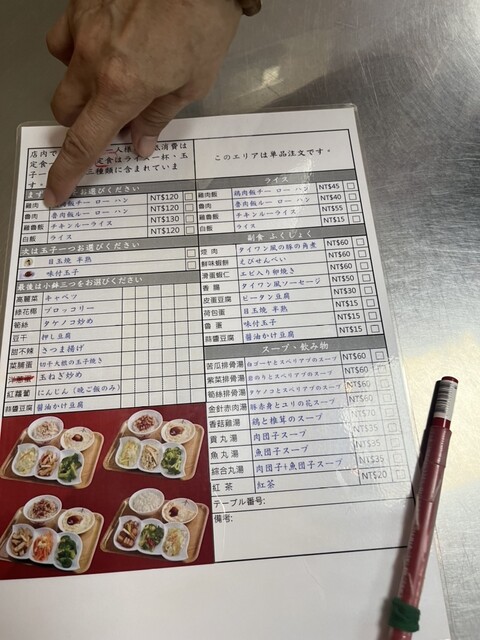 店内で 一人様 低消費は
定食 定食はライス一杯、玉
子一 三種類に含まれていま
す。
このエリアは単品注文です。
お選びください
雞肉 鶏肉飯チー ロー ハン NT$120
魯肉 魯肉飯ルー ロー ハン NT$120
雞魯飯 チキンルーライス NT$130
白飯 ライス NT$120
次は玉子一つお選びください
目玉焼 半熟
味付玉子
最後は小鉢三つをお選びください
高麗菜 キャベツ
綠花椰 ブロッコリー
筍絲 タケノコ炒め
豆干 押し豆腐
甜不辣 さつま揚げ
菜脯蛋 切干大根の玉子焼き
玉ねぎ炒め
紅蘿蔔 にんじん(晩ご飯のみ)
蒜醬豆腐 醤油かけ豆腐
ライス
雞肉飯 鶏肉飯チー ロー ハン NT$45
魯肉飯 魯肉飯ルー ロー ハン NT$40
雞魯飯 チキンルーライス NT$55
白飯 ライス NT$15
副食 ふくしょく
焢肉 タイワン風の豚の角煮 NT$60
鮮味蝦餅 えびせんべい NT$60
滑蛋蝦仁 エビ入り卵焼き NT$60
香腸 タイワン風ソーセージ NT$50
皮蛋豆腐 ピータン豆腐 NT$30
荷包蛋 目玉焼 半熟 NT$15
魯蛋 味付玉子 NT$15
蒜醬豆腐 醤油かけ豆腐 NT$15
スープ、飲み物
苦瓜排骨湯 白ゴーヤとスペベリアブのスープ NT$60
紫菜排骨湯 岩のりとスペベリアブのスープ NT$60
筍絲排骨湯 タケノコとスペベリアブのスープ NT$60
金針赤肉湯 豚赤身とユリの花スープ NT$60
香菇雞湯 鶏と椎茸のスープ NT$70
貢丸湯 肉団子スープ NT$35
魚丸湯 魚団子スープ NT$35
綜合丸湯 肉団子+魚団子スープ NT$35
紅茶 紅茶 NT$20
テーブル番号:
備考: